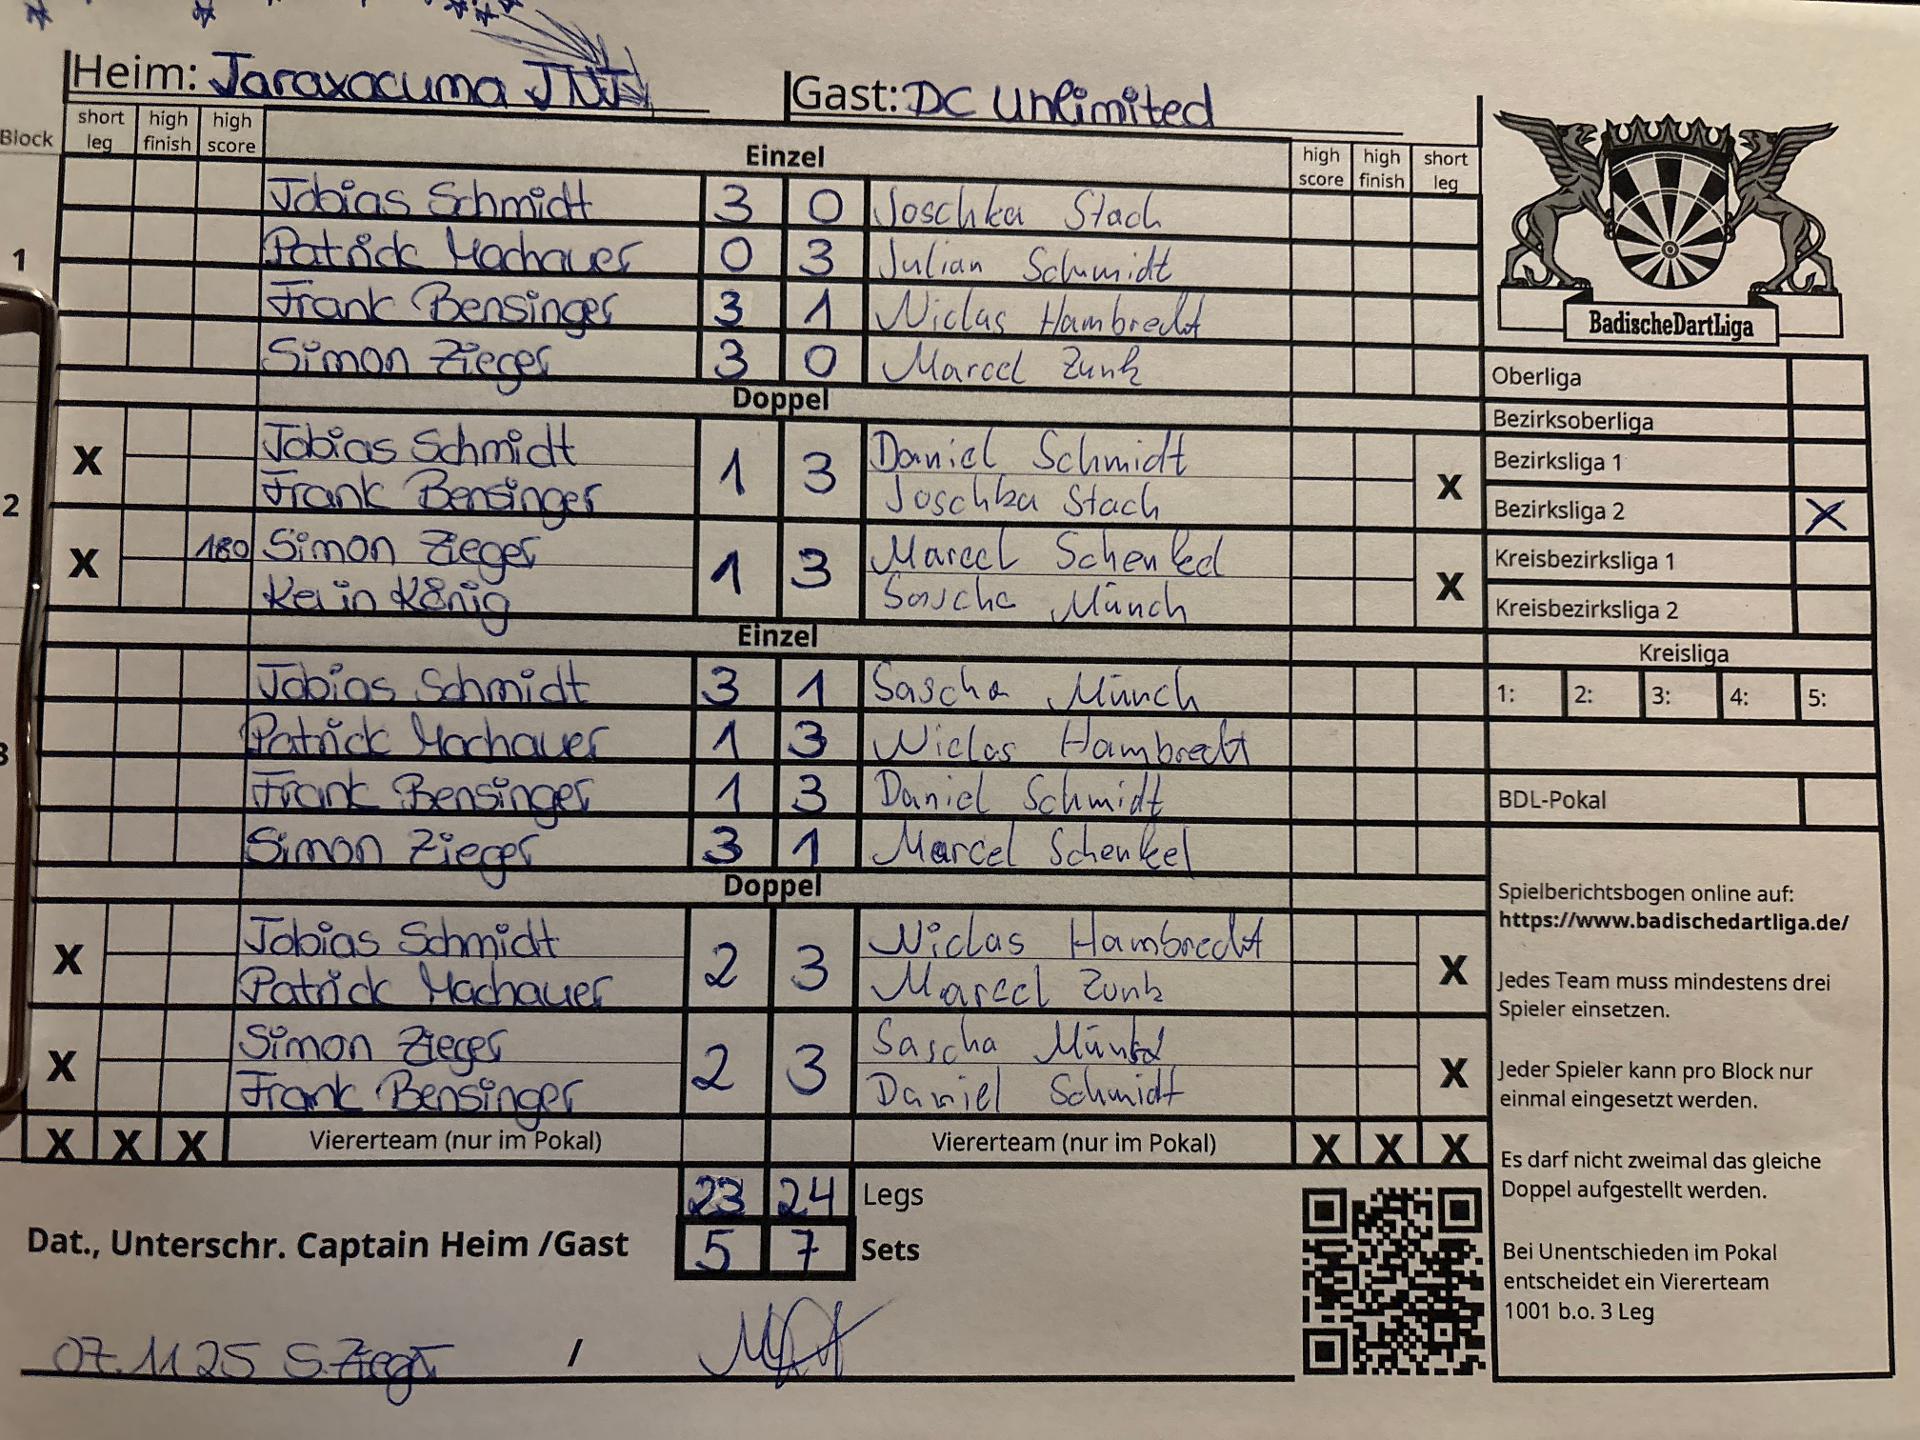 Heim: Taraxacuma JNJ Gast: DC Unlimited
Block short leg high finish high score Einzel high score high finish short leg
Tobias Schmidt 3 0 Joschka Stach
1 Patrick Machauer 0 3 Julian Schmidt
Frank Bensinger 3 1 Niclas Hambrecht
Simon Zieger 3 0 Marcel Zunk
Doppel
X Tobias Schmidt 1 3 Daniel Schmidt X
Frank Bensinger Joschka Stach
2
X 180 Simon Zieger 1 3 Marcel Schenkel X
Kevin König Sascha Münch
Einzel
Tobias Schmidt 3 1 Sascha Münch
3 Patrick Machauer 1 3 Niclas Hambrecht
Frank Bensinger 1 3 Daniel Schmidt
Simon Zieger 3 1 Marcel Schenkel
Doppel
X Tobias Schmidt 2 3 Niclas Hambrecht X
Patrick Machauer Marcel Zunk
X Simon Zieger 2 3 Sascha Münch X
Frank Bensinger Daniel Schmidt
X X X Viererteam (nur im Pokal) Viererteam (nur im Pokal) X X X
23 24 Legs
Dat., Unterschr. Captain Heim /Gast 5 7 Sets
07.11.25 S.Zieger /
BadischeDartLiga
Oberliga
Bezirksoberliga
Bezirksliga 1
Bezirksliga 2 X
Kreisbezirksliga 1
Kreisbezirksliga 2
Kreisliga
1: 2: 3: 4: 5:
BDL-Pokal
Spielberichtsbogen online auf:
https://www.badischedartliga.de/
Jedes Team muss mindestens drei
Spieler einsetzen.
Jeder Spieler kann pro Block nur
einmal eingesetzt werden.
Es darf nicht zweimal das gleiche
Doppel aufgestellt werden.
Bei Unentschieden im Pokal
entscheidet ein Viererteam
1001 b.o. 3 Leg